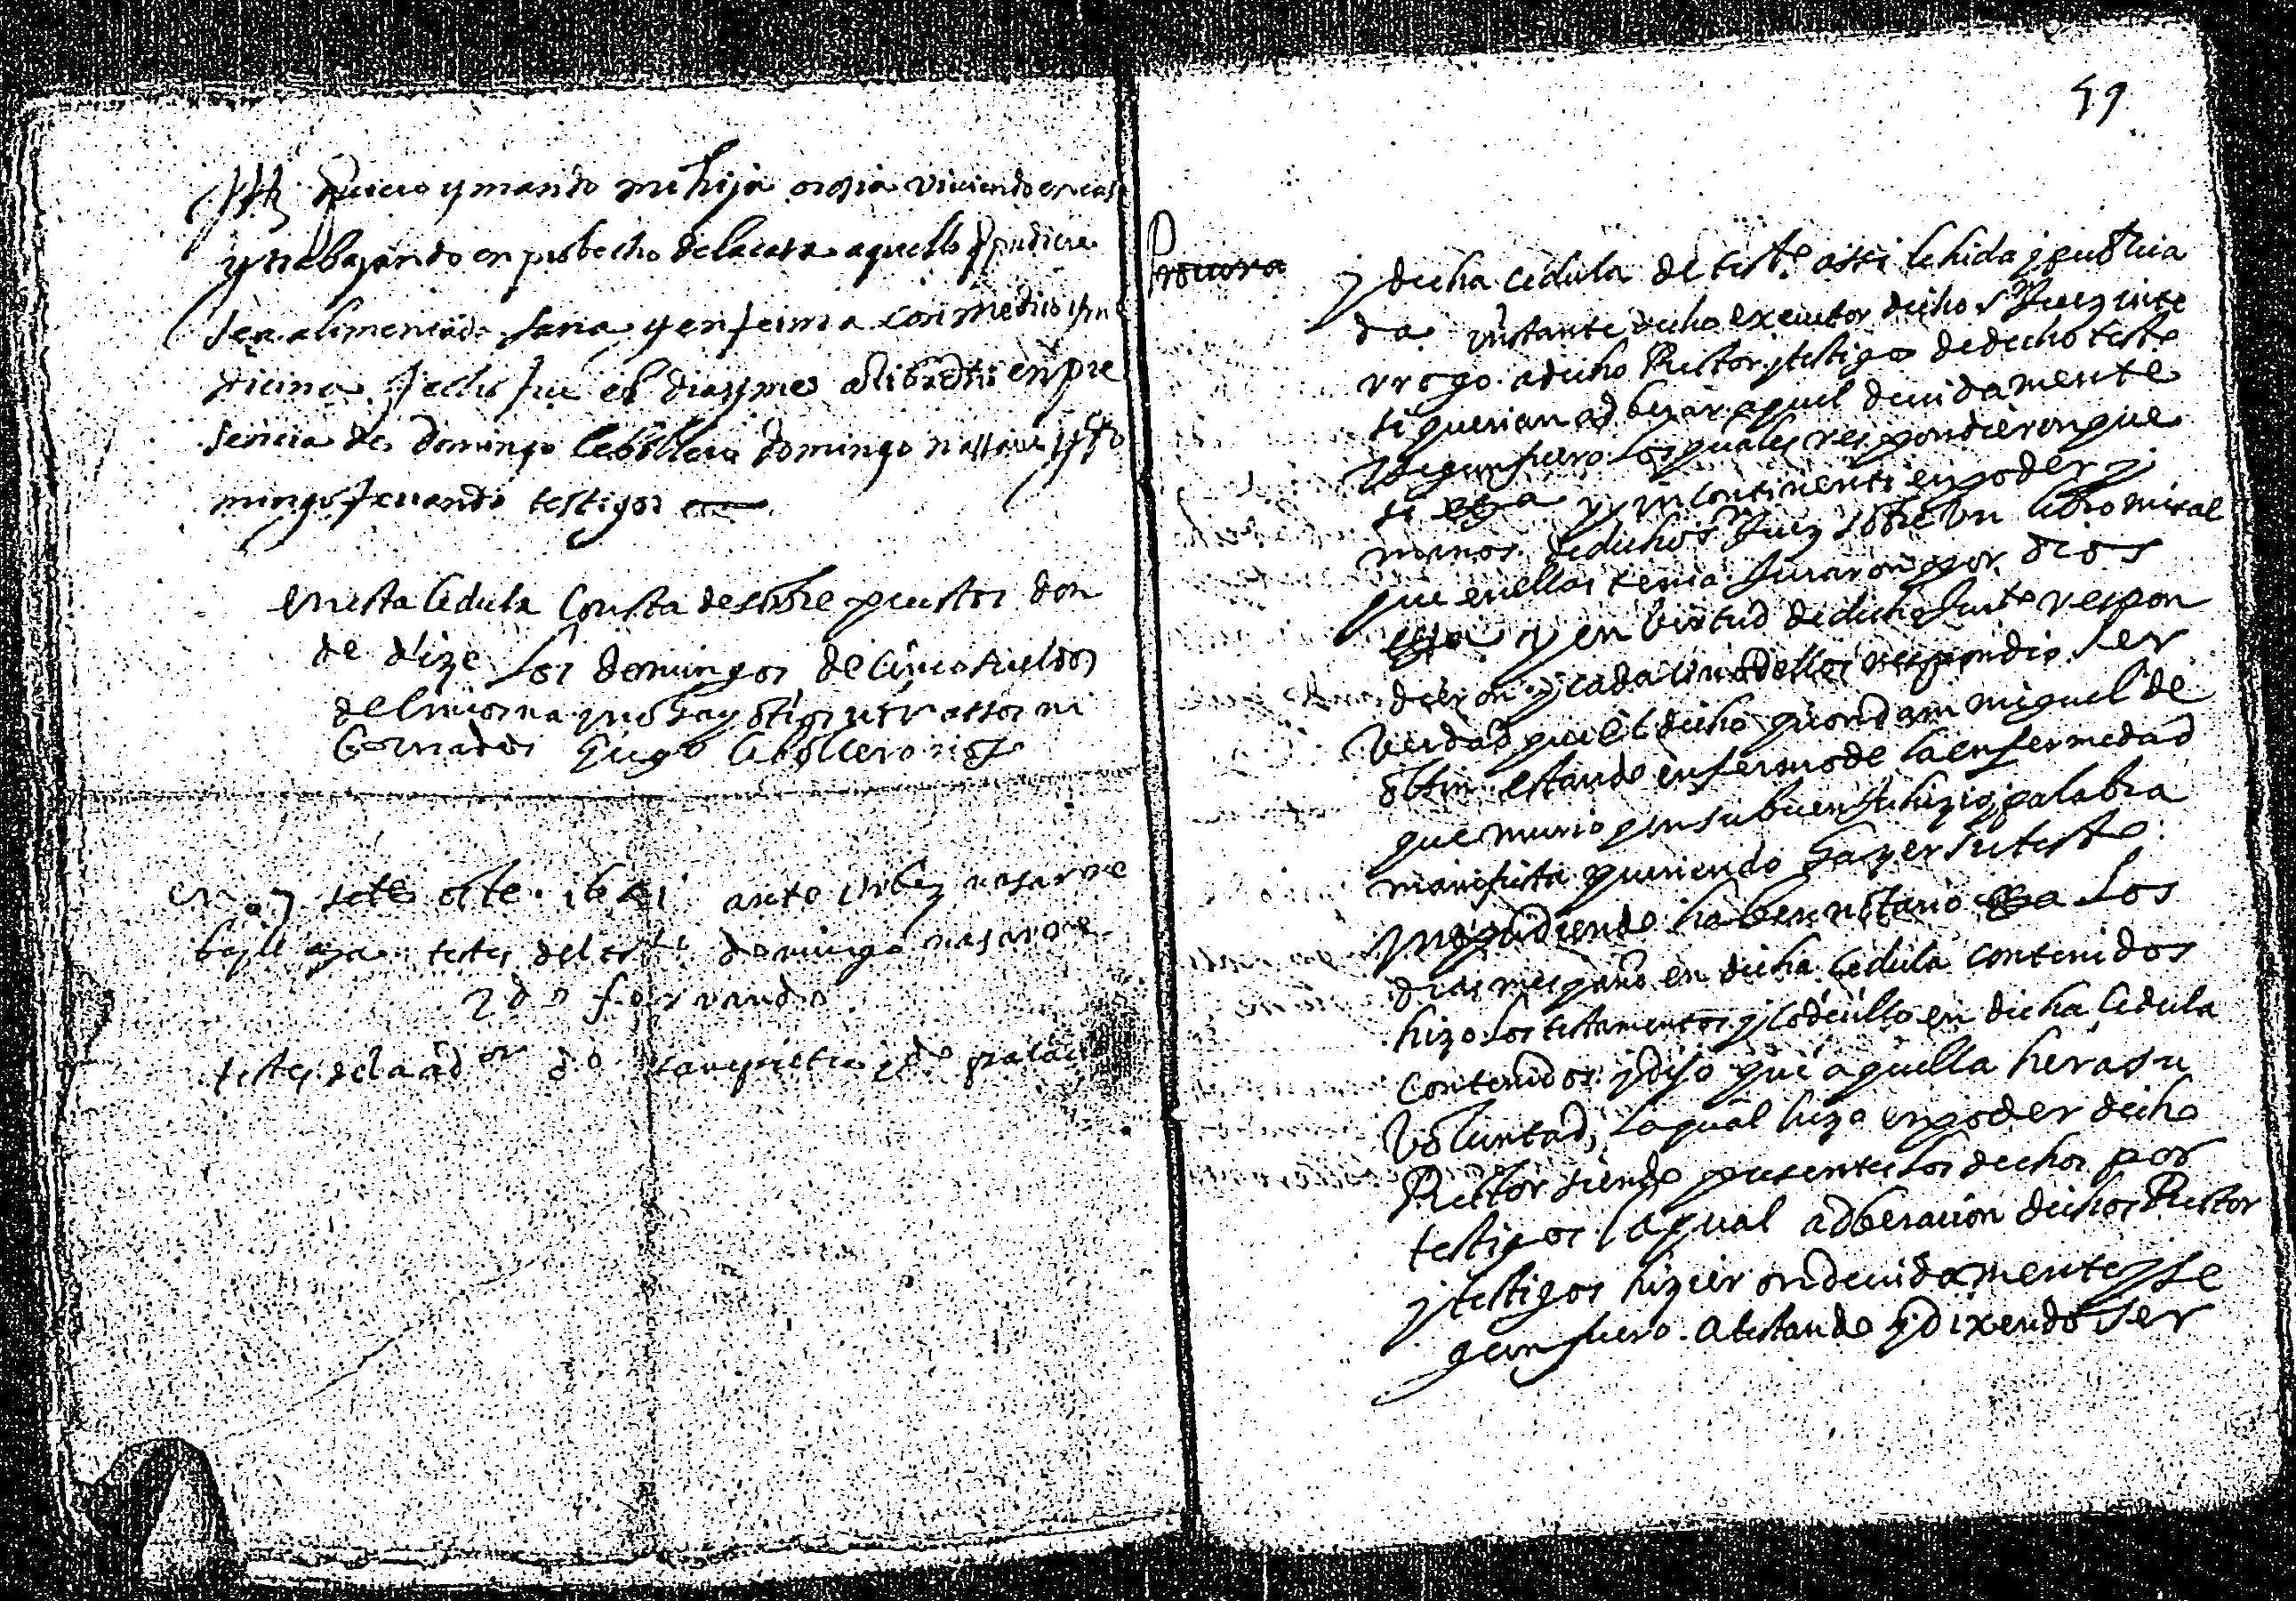 Itt quiero y mando mi hija orosia viviendo en casa
y trabajando en probecho de la casa aquello q pudiere
sea alimentada sana y enferma con medico y me
dicina fecho fue el dia y mes en pre
sencia de domingo Cebollero domingo nasarre y do
mingo feruando testigos
en esta cedula consta de sobre puestos don
de dize los domingos de cinco sueldos
de limosna y no hay otros ni rassos ni
borrados Yugo Cebollero
en 7 ante Urbez nasarre
bayle testes del domingo nasarre
y do feruando
testes de la ad on do y do
59
Procura
y dicha cedula de testo assi lehida y publica
da instante dicho executor dicho Sr Juez inte
rrogo a dicho Rector y testigos de dicho testo
si querian adberar aquel deuidamente
segun fuero los quales respondieron que
si y in continenti en poder y
manos de dicho Sr Juez sobre un libro misal
que en ellas tenia juraron por dios
y en birtud de dicho Jurto respon
dieron y cada uno dellos respondio ser
berdad que el dicho quondam miguel de
estando enfermo de la enfermedad
que murio y en su buen juhizio y palabra
manifiesta queriendo hazer su testo
y no pudiendo haber notario a los
dias mes y año en dicha cedula contenidos
hizo los testamentos y codicillo en dicha cedula
contenidos y dijo que aquella hera su
boluntad, la qual hizo en poder dicho
Rector siendo presentes los dichos por
testigos la qual adberacion dichos Rector
y testigos hizieron deuidamente y se
gun fuero. atestando y dixendo ser